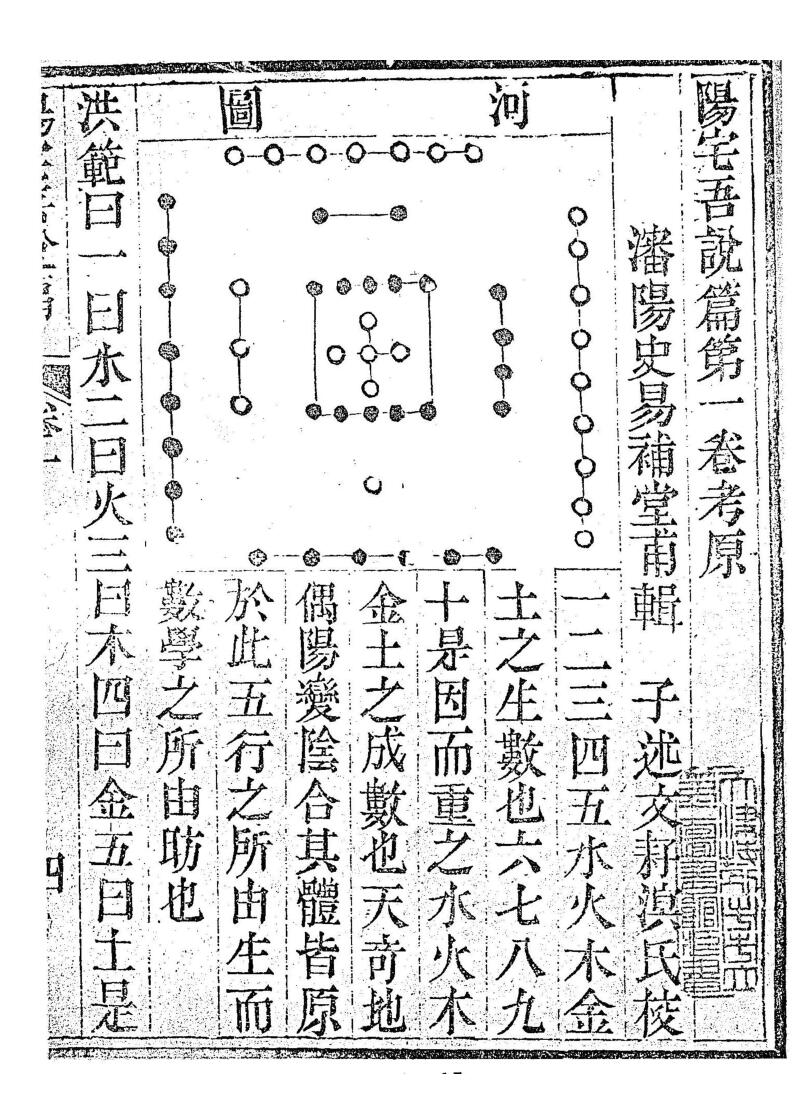 陽宅吾說篇第一卷考原
瀋陽史易補堂甫輯　子述文耔濵氏挍
河圖
一二三四五水火木金
土之生數也六七八九
十是因而重之水火木
金土之成數也天奇地
偶陽變陰合其體皆原
於此五行之所由生而
數學之所由昉也
洪範曰一曰水二曰火三曰木四曰金五曰土是
卷一
四